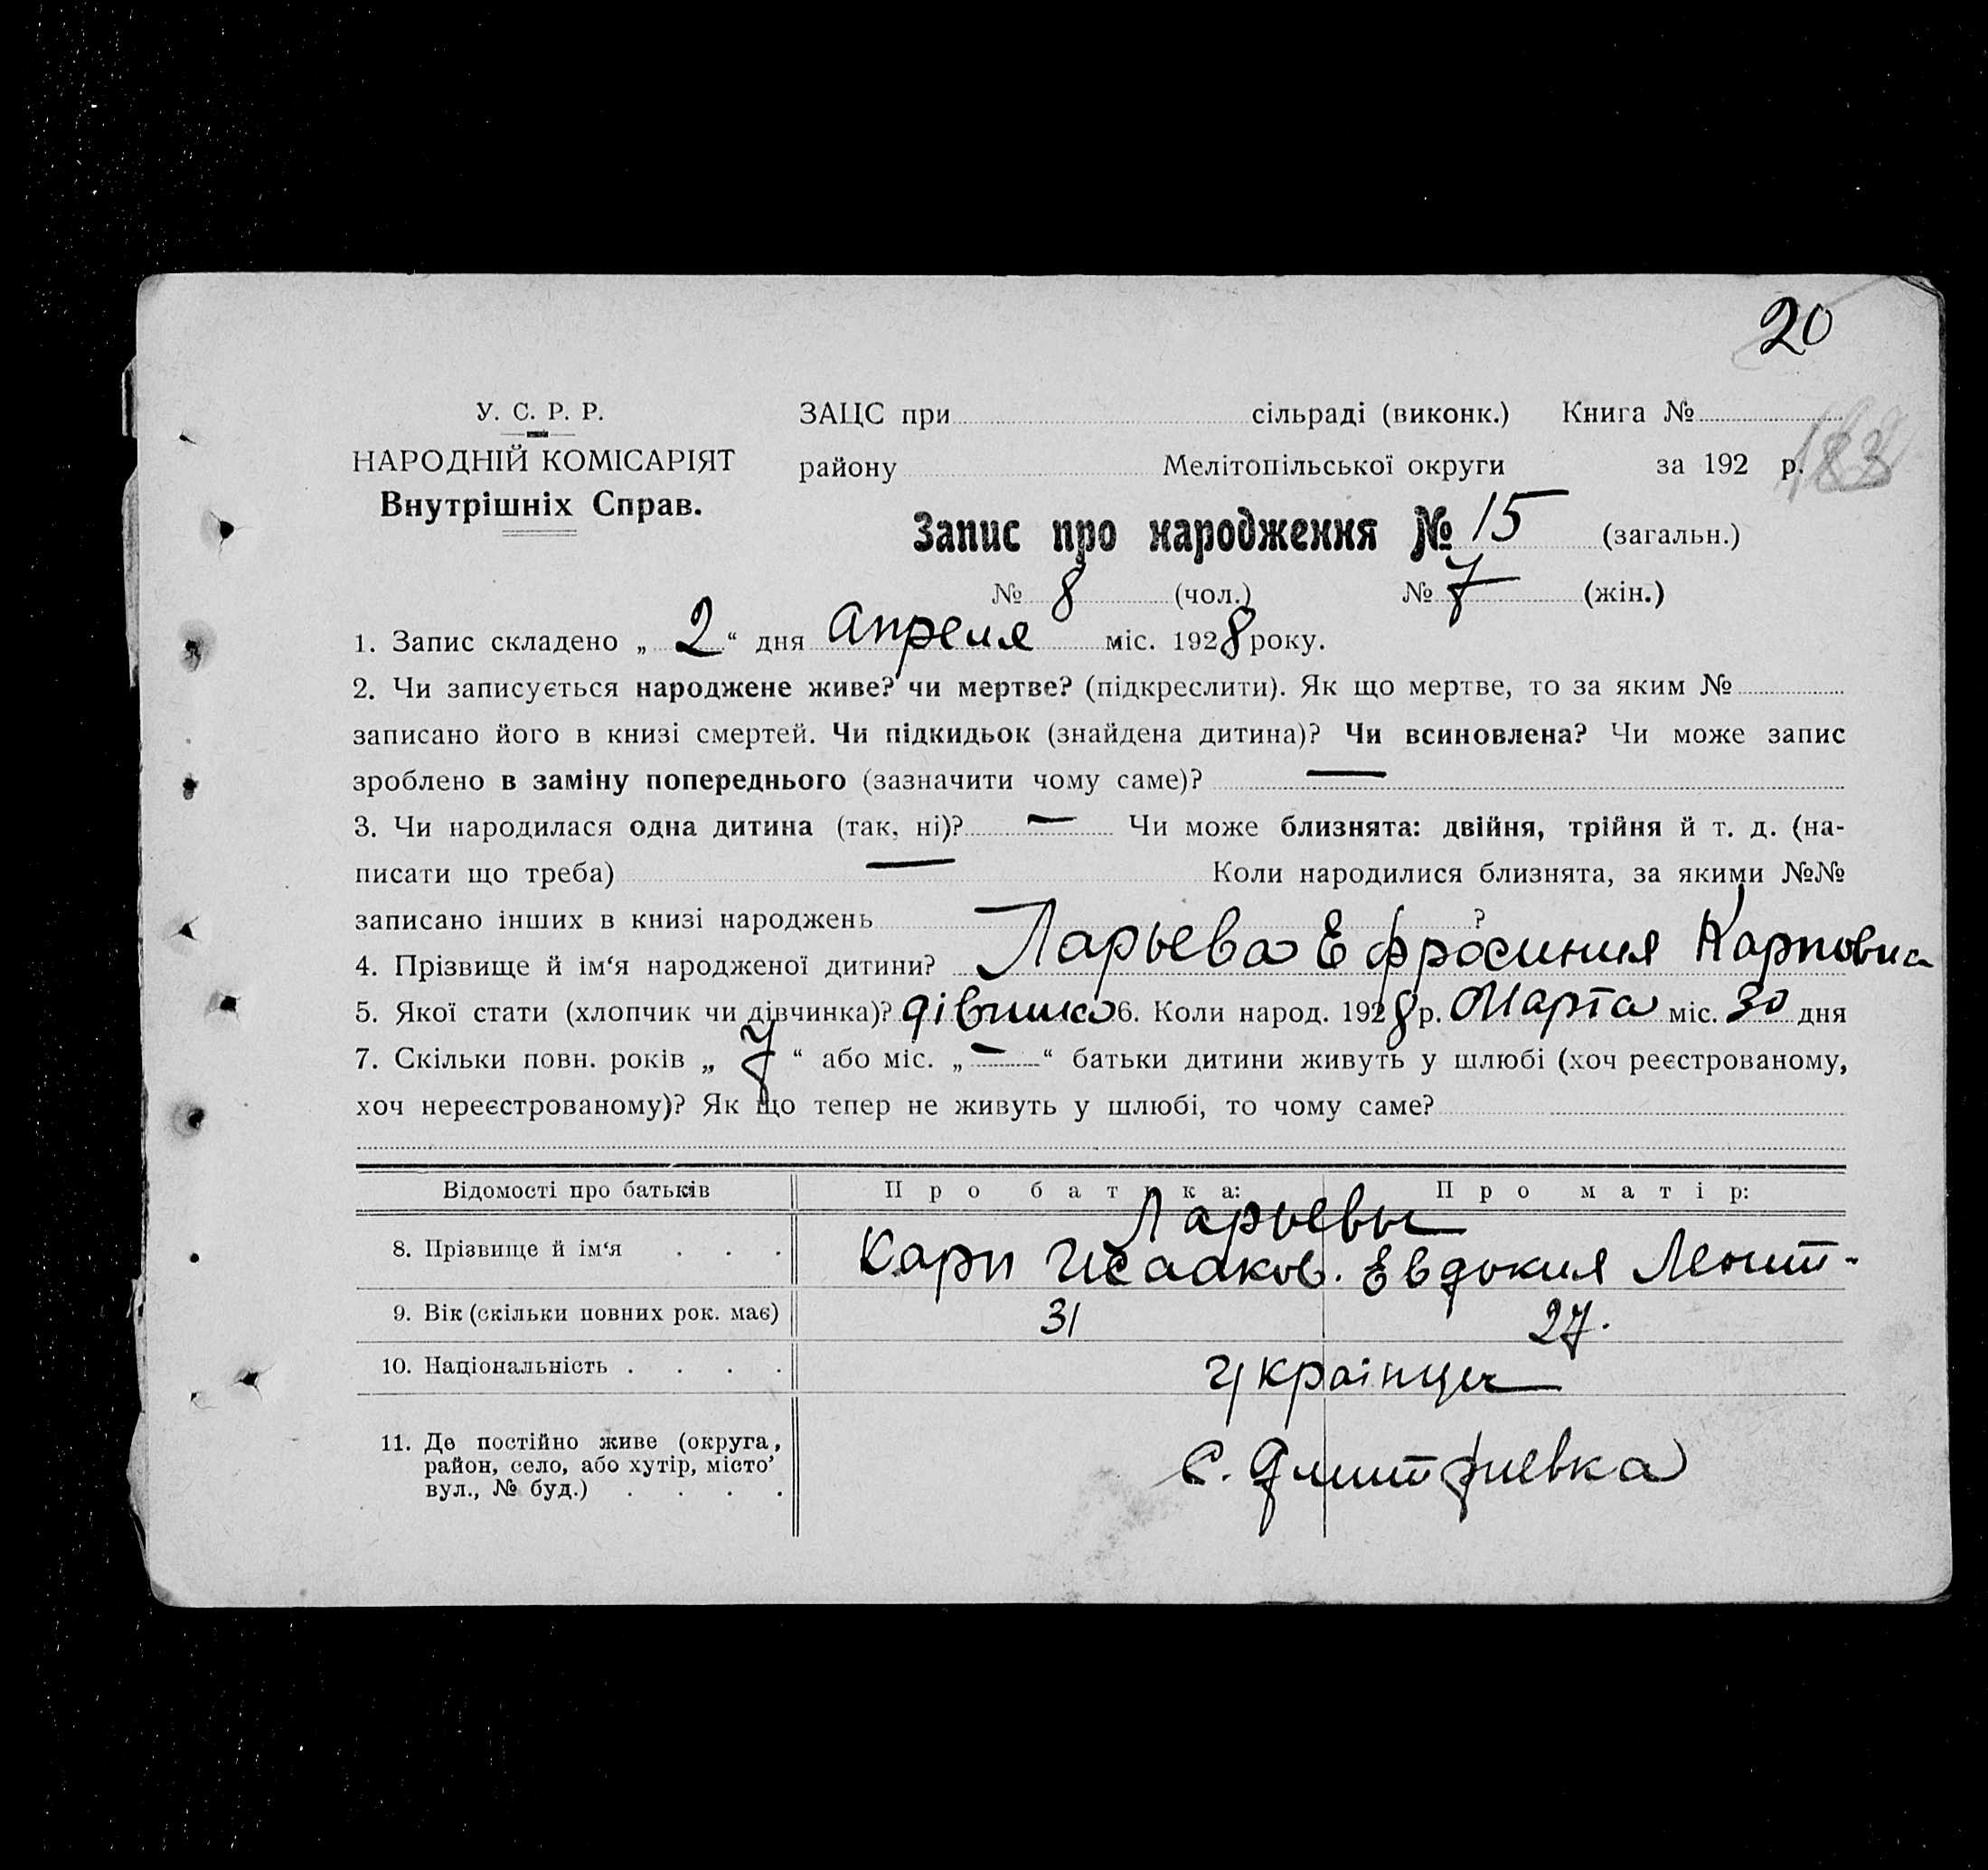 20
У. С. Р. Р.
НАРОДНІЙ КОМІСАРІЯТ
Внутрішніх Справ.
ЗАЦС при сільраді (виконк.) Книга №
району Мелітопільської округи за 192 р. 183
Запис про народження № 15 (загальн.)
№ 8 (чол.) № 7 (жін.)
1. Запис складено „ 2 “ дня апреля міс. 1928 року.
2. Чи записується народжене живе? чи мертве? (підкреслити). Як що мертве, то за яким №
записано його в книзі смертей. Чи підкидьок (знайдена дитина)? Чи всиновлена? Чи може запис
зроблено в заміну попереднього (зазначити чому саме)? —
3. Чи народилася одна дитина (так, ні)? — Чи може близнята: двійня, трійня й т. д. (на-
писати що треба) — Коли народилися близнята, за якими №№
записано інших в книзі народжень ?
4. Прізвище й ім‘я народженої дитини? Ларьева Ефросиния Карповна
5. Якої стати (хлопчик чи дівчинка)? дівчинка 6. Коли народ. 1928 р. Марта міс. 30 дня
7. Скільки повн. років „ 7 “ або міс. „ — “ батьки дитини живуть у шлюбі (хоч реєстрованому,
хоч нереєстрованому)? Як що тепер не живуть у шлюбі, то чому саме?
Відомості про батьків Про батька: Про матір:
Ларьевы
8. Прізвище й ім‘я . . . Карп Исааков. Евдокия
9. Вік (скільки повних рок. має) 31 27.
10. Національність . . . . Українцы
11. Де постійно живе (округа,
район, село, або хутір, місто’
вул., № буд.) . . . . с. Дмитриевка